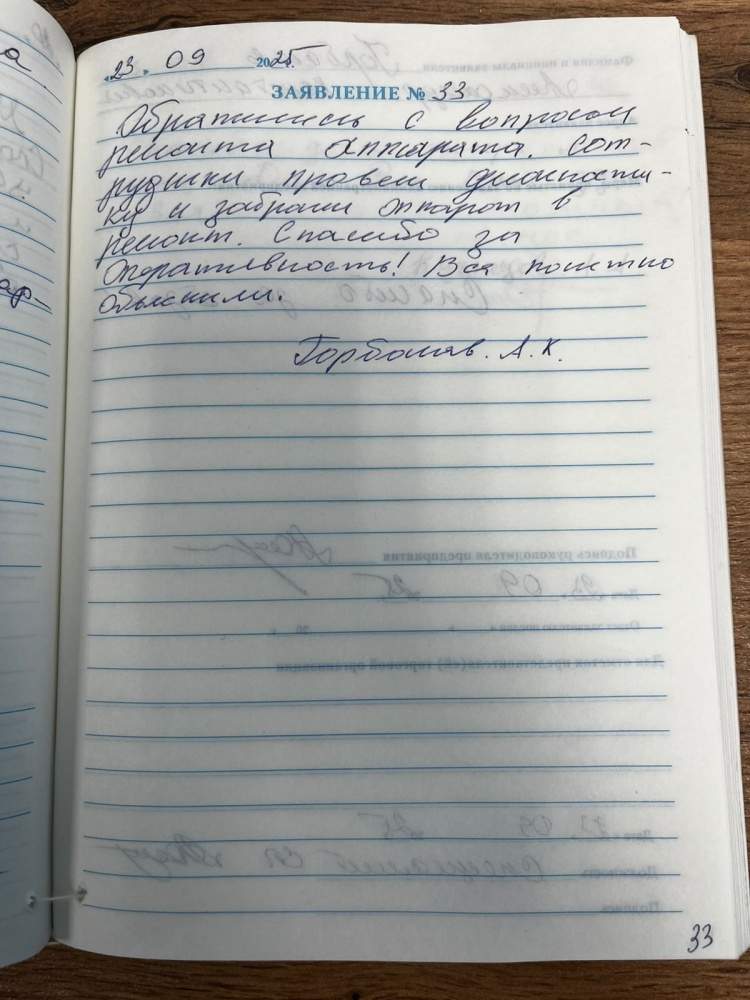 «23» 09 2025г.
ЗАЯВЛЕНИЕ № 33
Обратились с вопросом
ремонта аппарата. Сот-
рудники провели диагности-
ку и забрали аппарат в
ремонт. Спасибо за
оперативность! Все понятно
объяснили.
А. К.
33